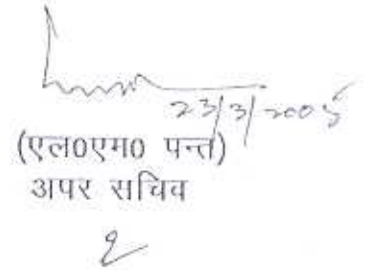 23/3/2005
(एल0एम0 पन्त)
अपर सचिव